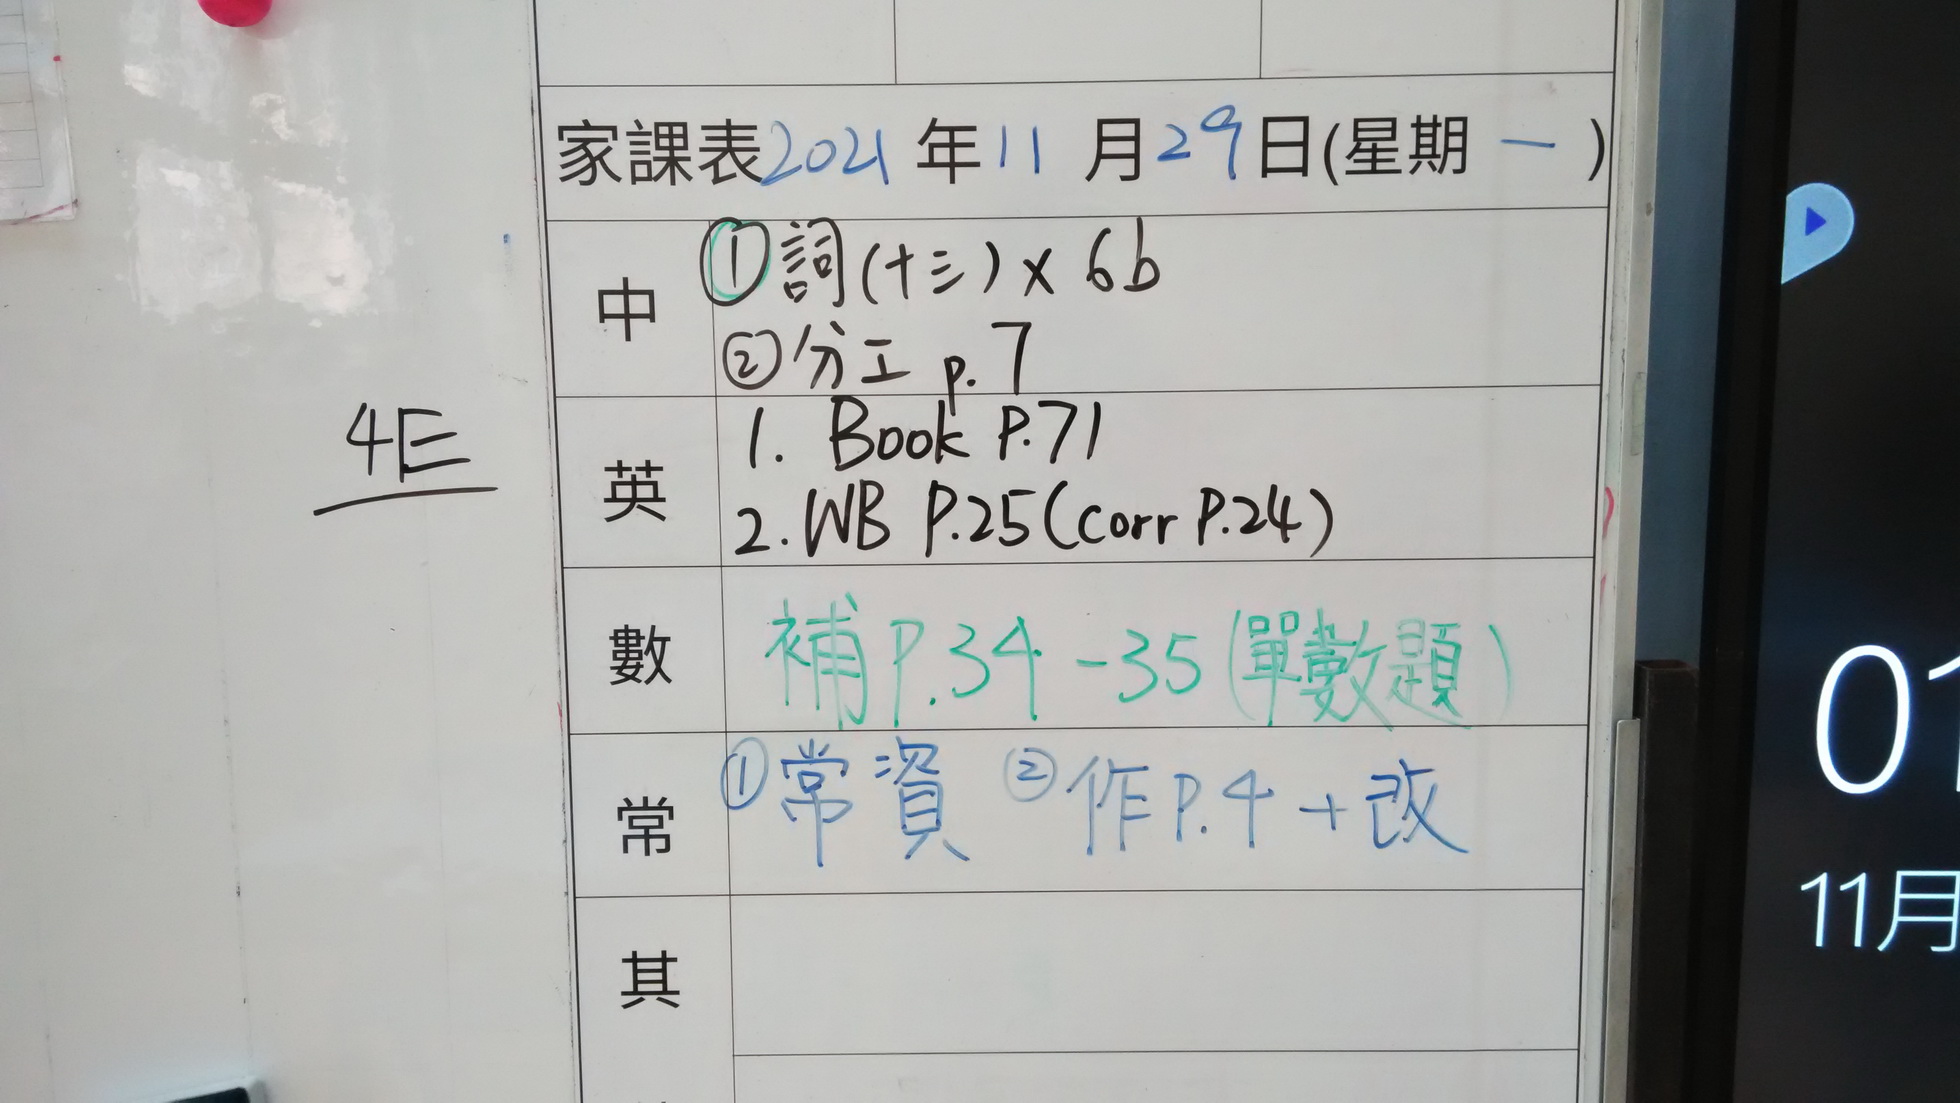 家課表2021年11月29日(星期一)
中
①詞(十三)x 6b
②分工 p.7
4E
英
1. Book P.71
2. WB P.25(corr P.24)
數
補P.34-35(單數題)
常
①常資 ②作P.4+改
其
01
11月